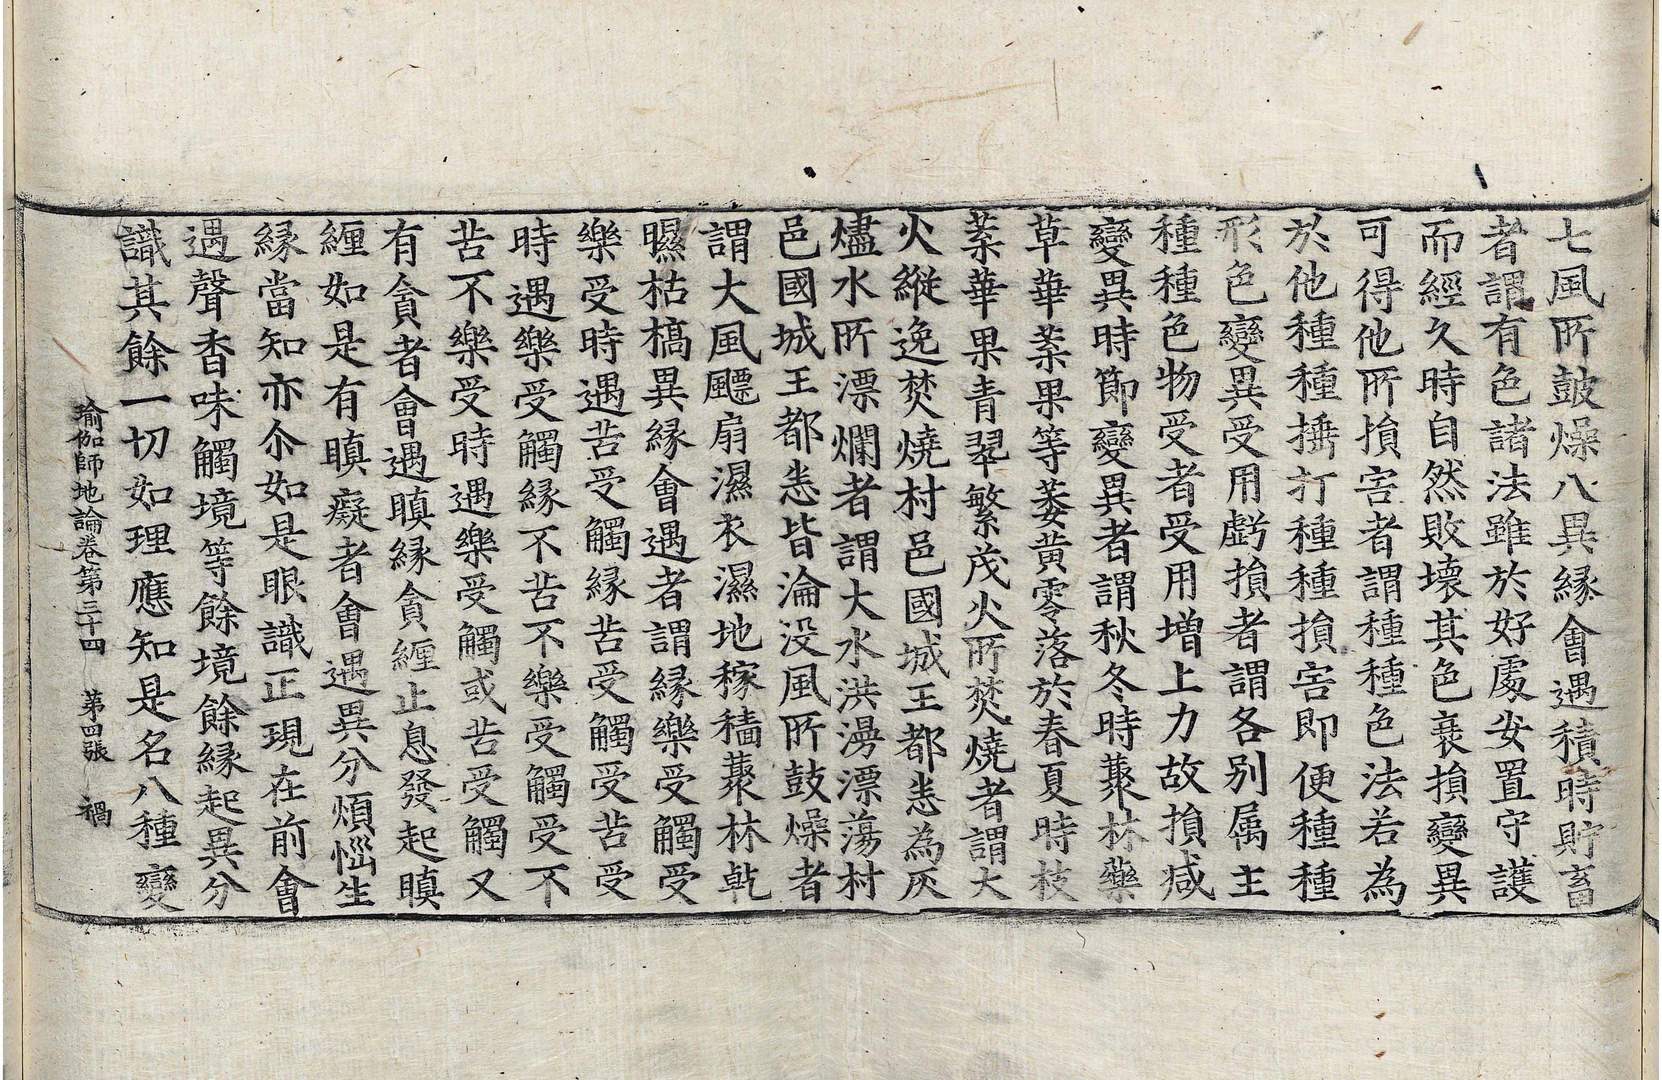 七風所鼓燥八異縁會遇積時貯畜
者謂有色諸法雖於好處安置守護
而經久時自然敗壞其色衰損變異
可得他所損害者謂種種色法若為
於他種種捶打種種損害即便種種
形色變異受用虧損者謂各別属主
種種色物受者受用增上力故損減
變異時節變異者謂秋冬時藂林藥
草華葉果等萎黄零落於春夏時枝
葉華果青翠繁茂火所焚燒者謂大
火縱逸焚燒村邑國城王都悉為灰
燼水所漂爛者謂大水洪漫漂蕩村
邑國城王都悉皆淪没風所鼓燥者
謂大風飃扇濕衣濕地稼穡藂林乹
曝枯槁異縁會遇者謂縁樂受觸受
樂受時遇苦受觸縁苦受觸受苦受
時遇樂受觸縁不苦不樂受觸受不
苦不樂受時遇樂受觸或苦受觸又
有貪者會遇瞋縁貪纏止息發起瞋
纏如是有瞋癡者會遇異分煩惱生
縁當知亦尒如是眼識正現在前會
遇聲香味觸境等餘境餘縁起異分
識其餘一切如理應知是名八種變
瑜伽師地論卷第三十四 第四張 禍